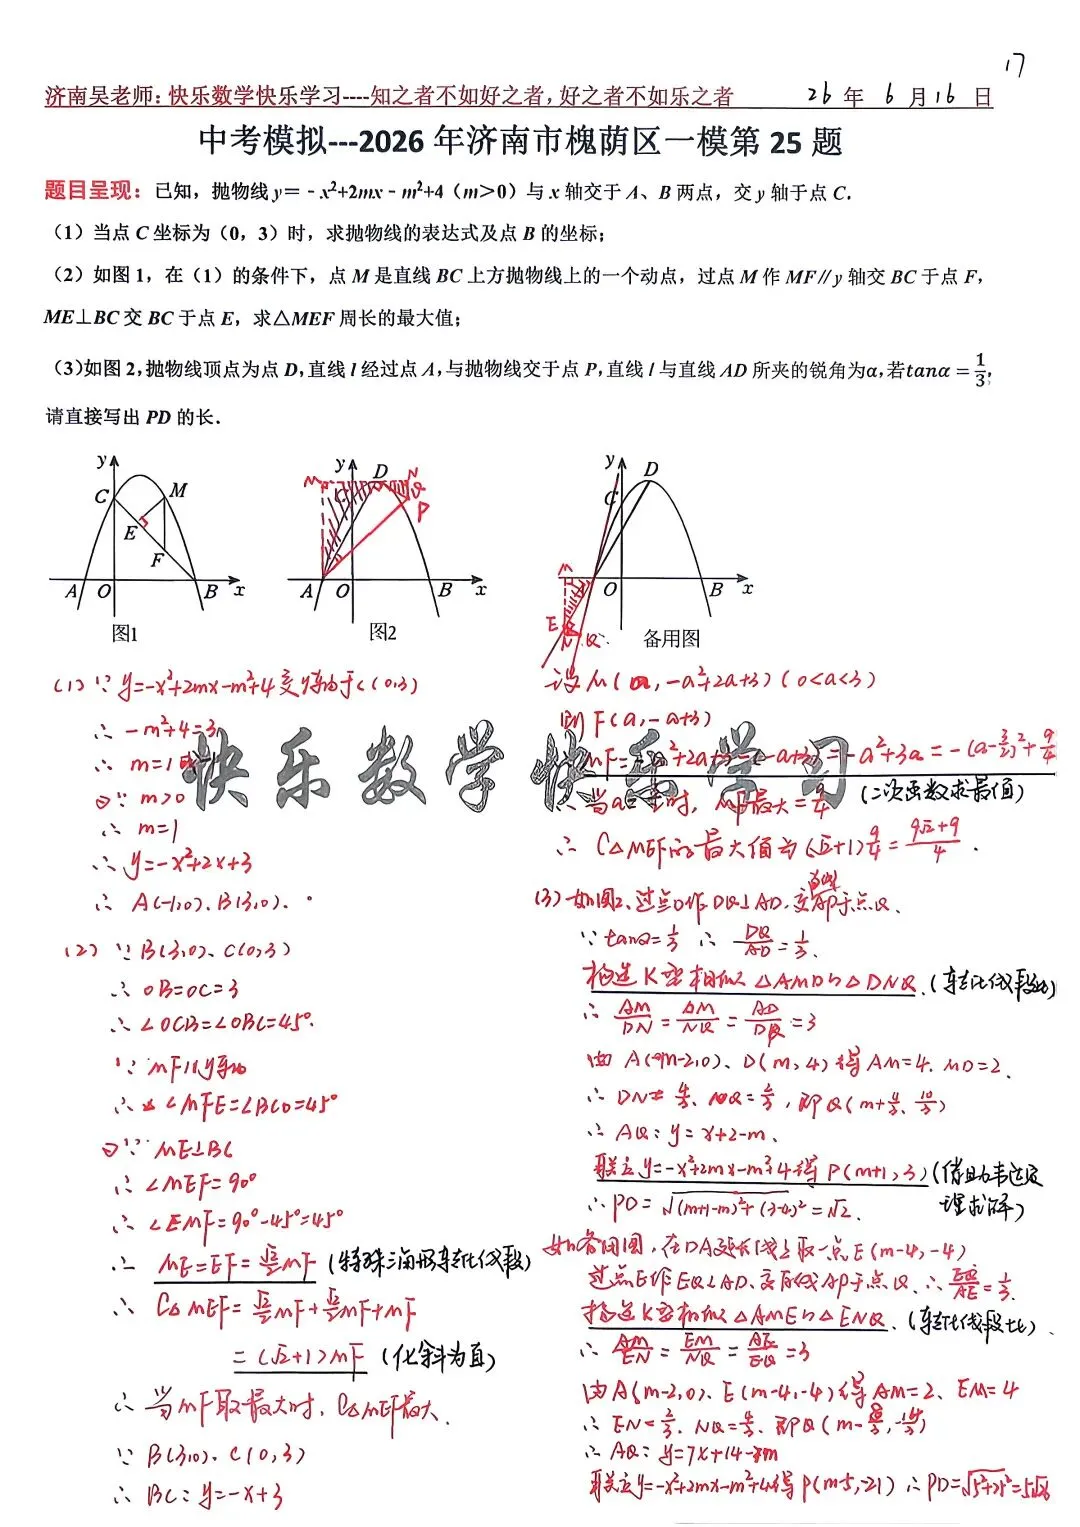 17
济南吴老师：快乐数学快乐学习----知之者不如好之者，好之者不如乐之者 26 年 6 月 16 日
中考模拟---2026 年济南市槐荫区一模第 25 题
题目呈现：已知，抛物线 y＝﹣x²+2mx﹣m²+4（m＞0）与 x 轴交于 A、B 两点，交 y 轴于点 C．
（1）当点 C 坐标为（0，3）时，求抛物线的表达式及点 B 的坐标；
（2）如图 1，在（1）的条件下，点 M 是直线 BC 上方抛物线上的一个动点，过点 M 作 MF∥y 轴交 BC 于点 F，
ME⊥BC 交 BC 于点 E，求△MEF 周长的最大值；
（3）如图 2，抛物线顶点为点 D，直线 l 经过点 A，与抛物线交于点 P，直线 l 与直线 AD 所夹的锐角为α，若tanα = 1/3，
请直接写出 PD 的长．
y C M E F A O B x
图1
y M D N C Q P A O B x
图2
y D C M A O B x E N Q
备用图
快乐数学快乐学习
(1) ∵ y=-x²+2mx-m²+4交y轴于C(0,3)
∴ -m²+4=3
∴ m=1
又∵ m>0
∴ m=1
∴ y=-x²+2x+3
∴ A(-1,0)、B(3,0)、
(2) ∵ B(3,0)、C(0,3)
∴ OB=OC=3
∴ ∠OCB=∠OBC=45°
∵ MF∥y轴
∴ ∠MFE=∠BCO=45°
又∵ ME⊥BC
∴ ∠MEF=90°
∴ ∠EMF=90°-45°=45°
∴ ME=EF=√2/2MF (特殊三角形转化线段)
∴ C△MEF=√2/2MF+√2/2MF+MF
=(√2+1)MF (化斜为直)
∴ 当MF取最大时，C△MEF最大.
∵ B(3,0)、C(0,3)
∴ BC：y=-x+3
设M(a,-a²+2a+3)(0<a<3)
则F(a,-a+3)
MF=-a²+2a+3-(-a+3)=-a²+3a=-(a-3/2)²+9/4
当a=3/2时，MF最大=9/4 (二次函数求最值)
∴ C△MEF的最大值为(√2+1)9/4=(9√2+9)/4.
(3) 如图2、过点D作DQ⊥AD、交直线AP于点Q、
∵ tanα=1/3 ∴ DQ/AD=1/3.
构造K型相似△AMD∽△DNQ. (转化线段比)
∴ AM/DN=DM/NQ=AD/DQ=3
由A(m-2,0)、D(m,4)得AM=4、MD=2.
∴ DN=4/3、NQ=2/3，即Q(m+4/3,10/3)
∴ AQ：y=x+2-m.
联立y=-x²+2mx-m²+4得P(m+1,3) (借助韦达定
理求解)
∴ PD=√(m+1-m)²+(3-4)²=√2.
如备用图，在DA延长线上取一点E(m-4,-4)
过点E作EQ⊥AD、交直线AP于点Q、∴ EQ/AE=1/3.
构造K型相似△AME∽△ENQ. (转化线段比)
∴ AM/EN=EM/NQ=AE/EQ=3
由A(m-2,0)、E(m-4,-4)得AM=2、EM=4
∴ EN=2/3、NQ=4/3、即Q(m-8/3,-14/3)
∴ AQ：y=7x+14-7m
联立y=-x²+2mx-m²+4得P(m-5,-21) ∴ PD=√5²+25²=5√26